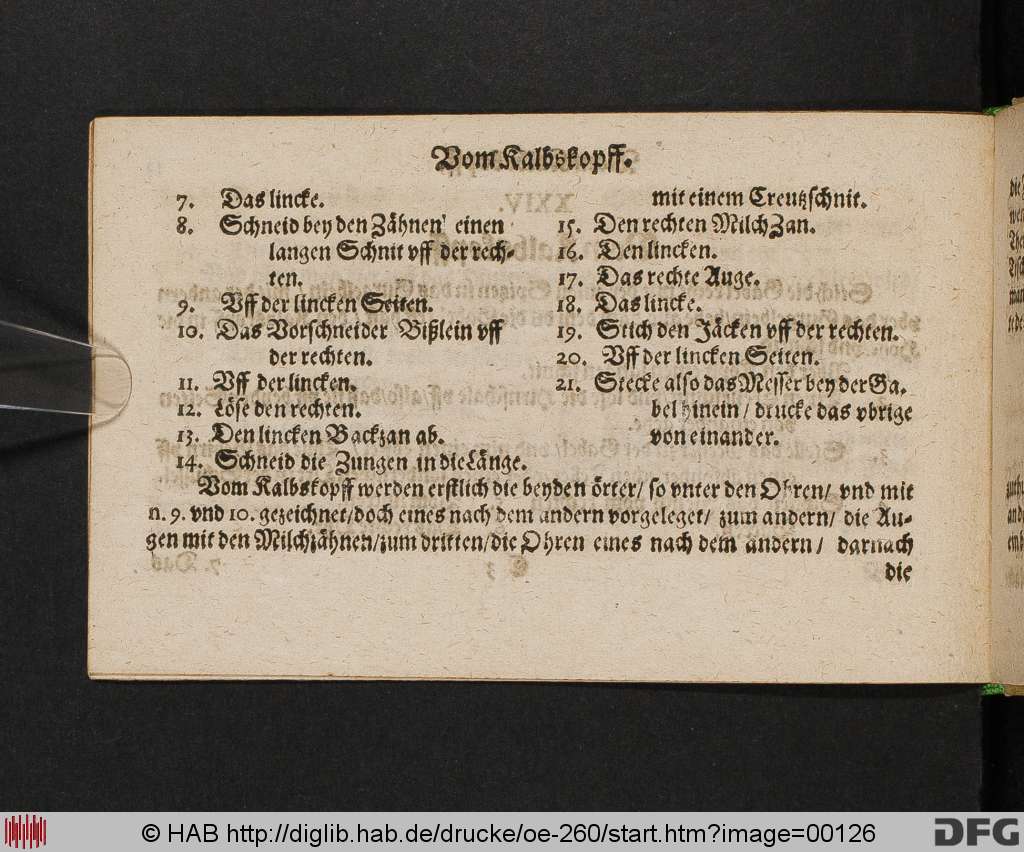 Vom Kalbskopff.
7. Das lincke.
8. Schneid bey den Zähnen einen
langen Schnit vff der rech-
ten.
9. Vff der lincken Seiten.
10. Das Vorschneider Bißlein vff
der rechten.
11. Vff der lincken.
12. Löse den rechten.
13. Den lincken Backzan ab.
14. Schneid die Zungen in die Länge.
mit einem Creutzschnit.
15. Den rechten MilchZan.
16. Den lincken.
17. Das rechte Auge.
18. Das lincke.
19. Stich den Jäcken vff der rechten.
20. Vff der lincken Seiten.
21. Stecke also das Messer bey der Ga.
bel hinein / drucke das vbrige
von einander.
Vom Kalbskopff werden erstlich die beyden örter / so vnter den Ohren / vnd mit
n. 9. vnd 10. gezeichnet / doch eines nach dem andern vorgeleget / zum andern / die Au-
gen mit den Milchzähnen / zum dritten / die Ohren eines nach dem andern / darnach
die
© HAB http://diglib.hab.de/drucke/oe-260/start.htm?image=00126
DFG